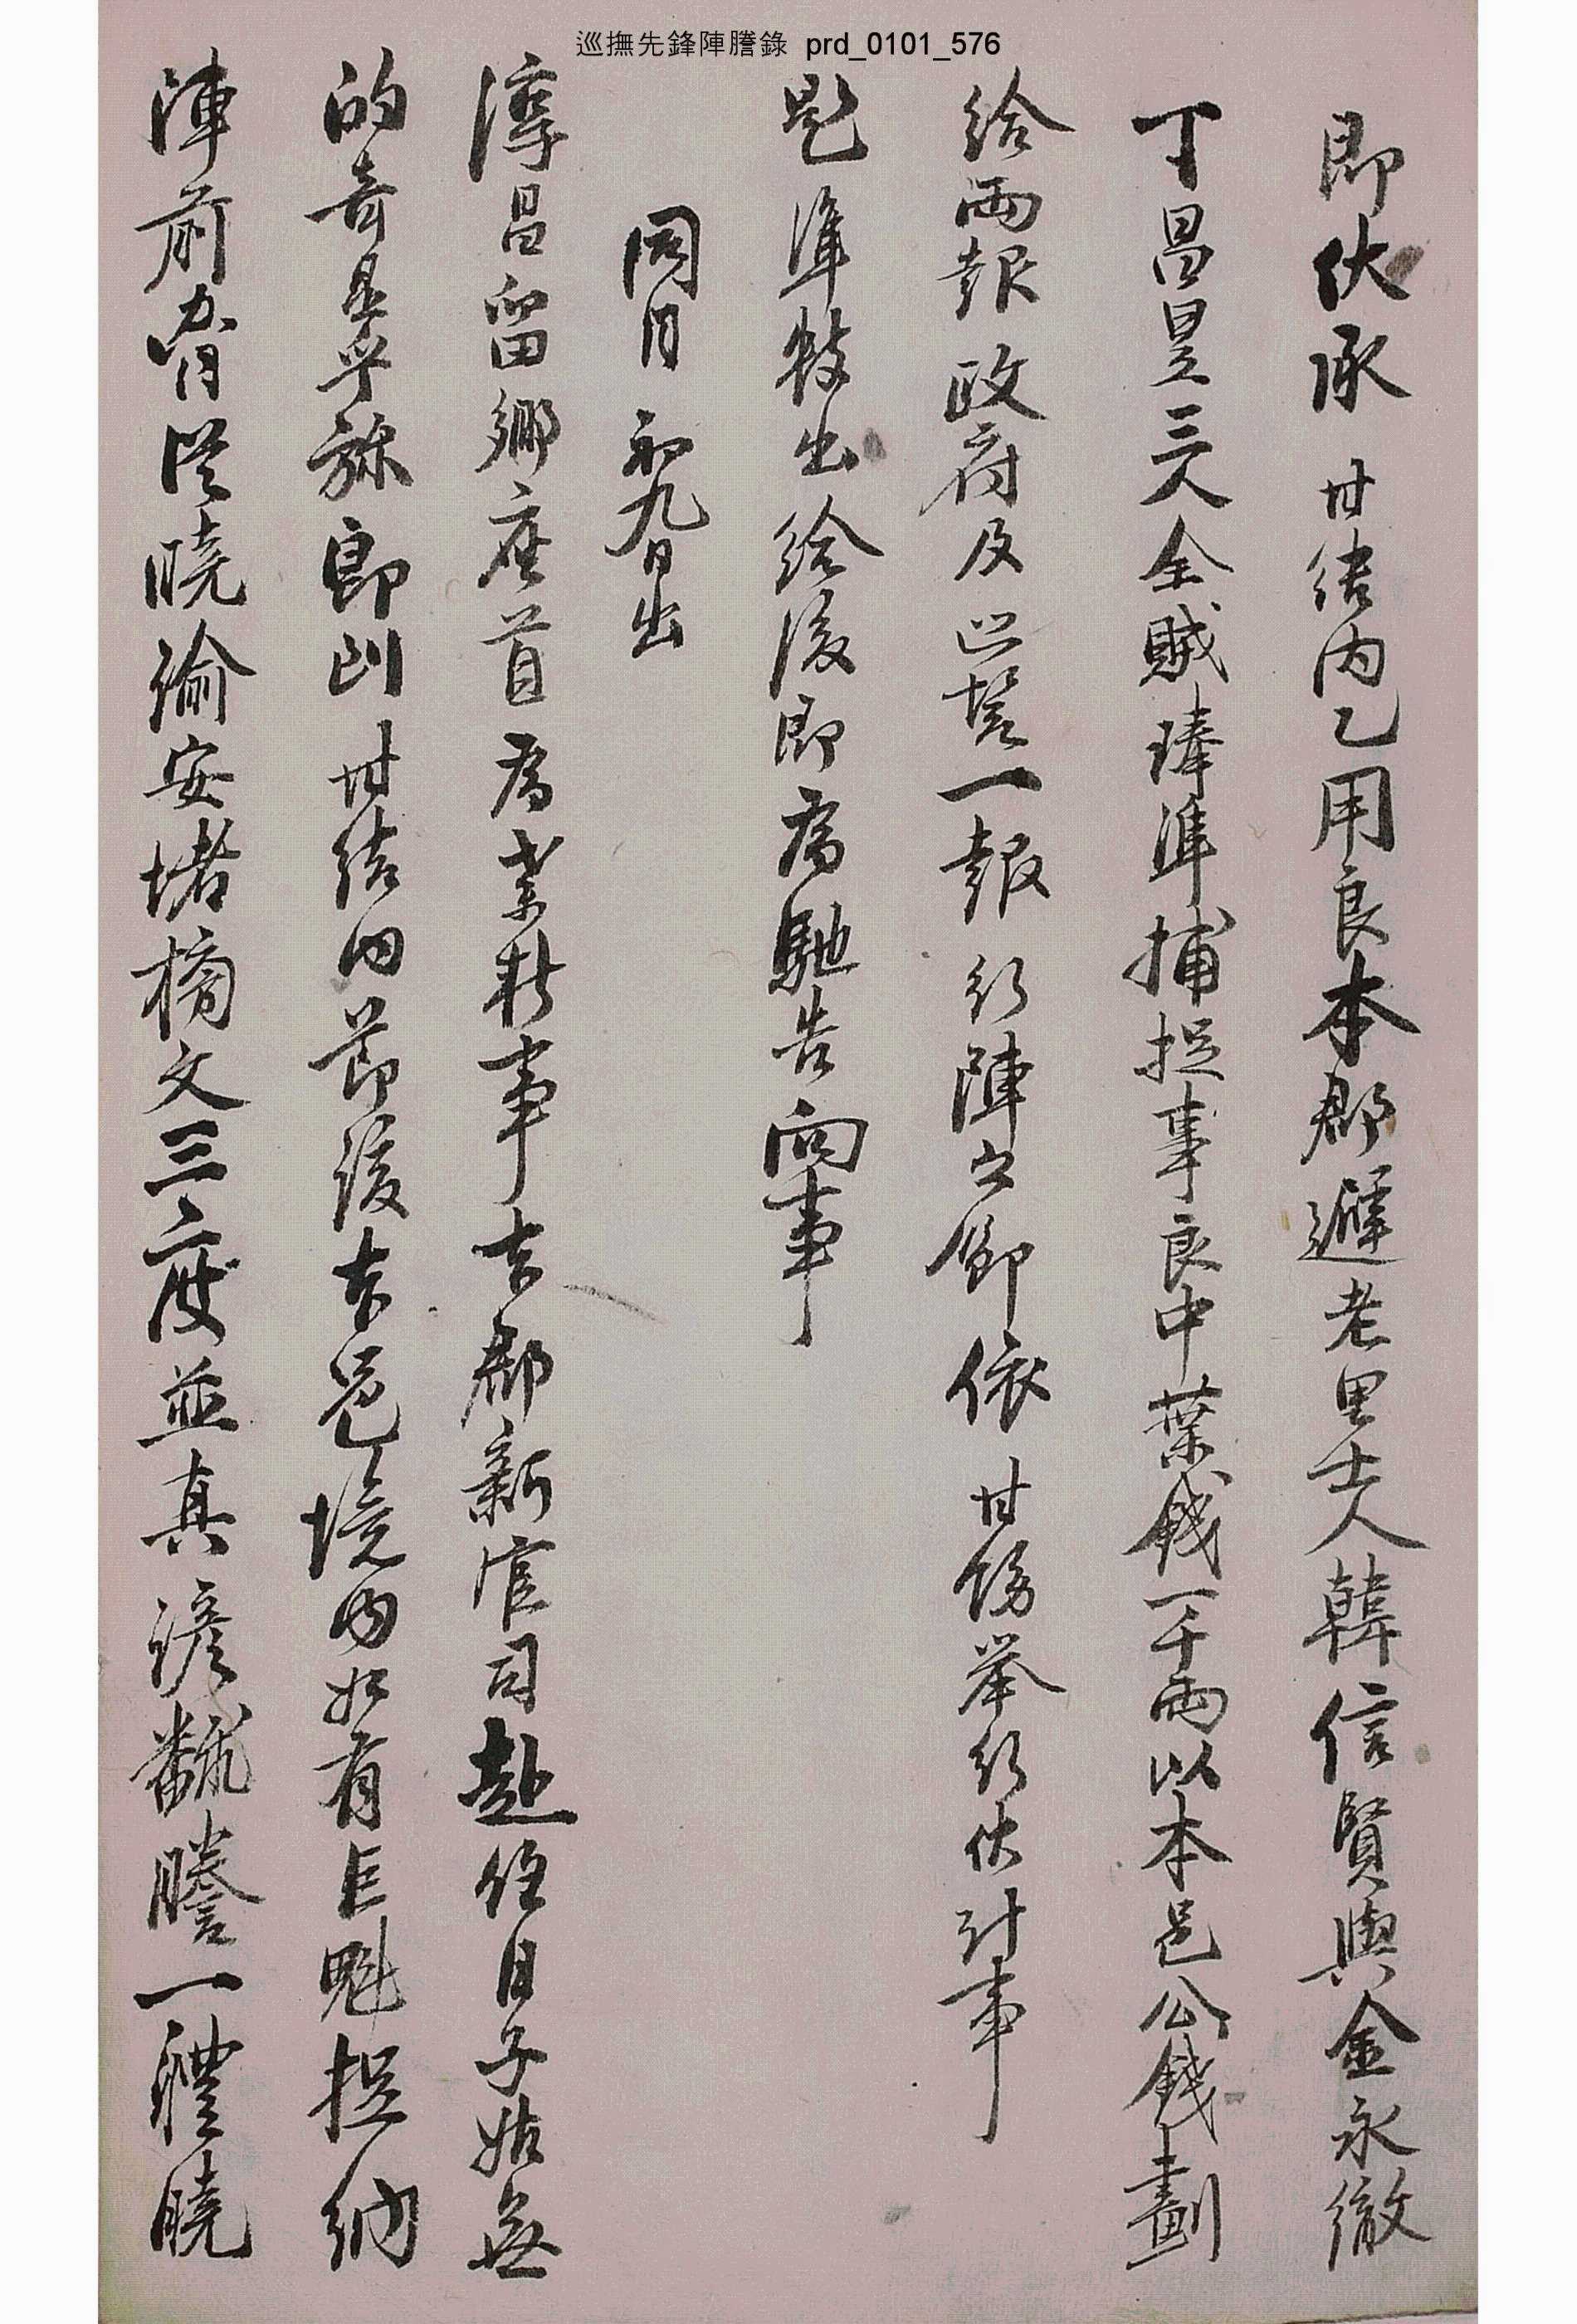 巡撫先鋒陣謄錄 prd_0101_576
卽伏承 甘結內乙用良本郡遯老里士人韓信賢與金永徹
丁昌昱三人全賊琫準捕捉事良中葉錢一千兩以本邑公錢劃
給兩報 政府及巡營一報行陣之卽依 甘飭擧行伏計事
題 準數出給後卽爲馳告向事
同月初九日出
淳昌留鄕座首爲牒報事本郡新官司赴任日子姑無
的奇是乎旀卽到 甘結內節該本邑境內如有巨魁捉納
陣前脅從曉諭安堵榜文三度並眞諺飜謄一體曉